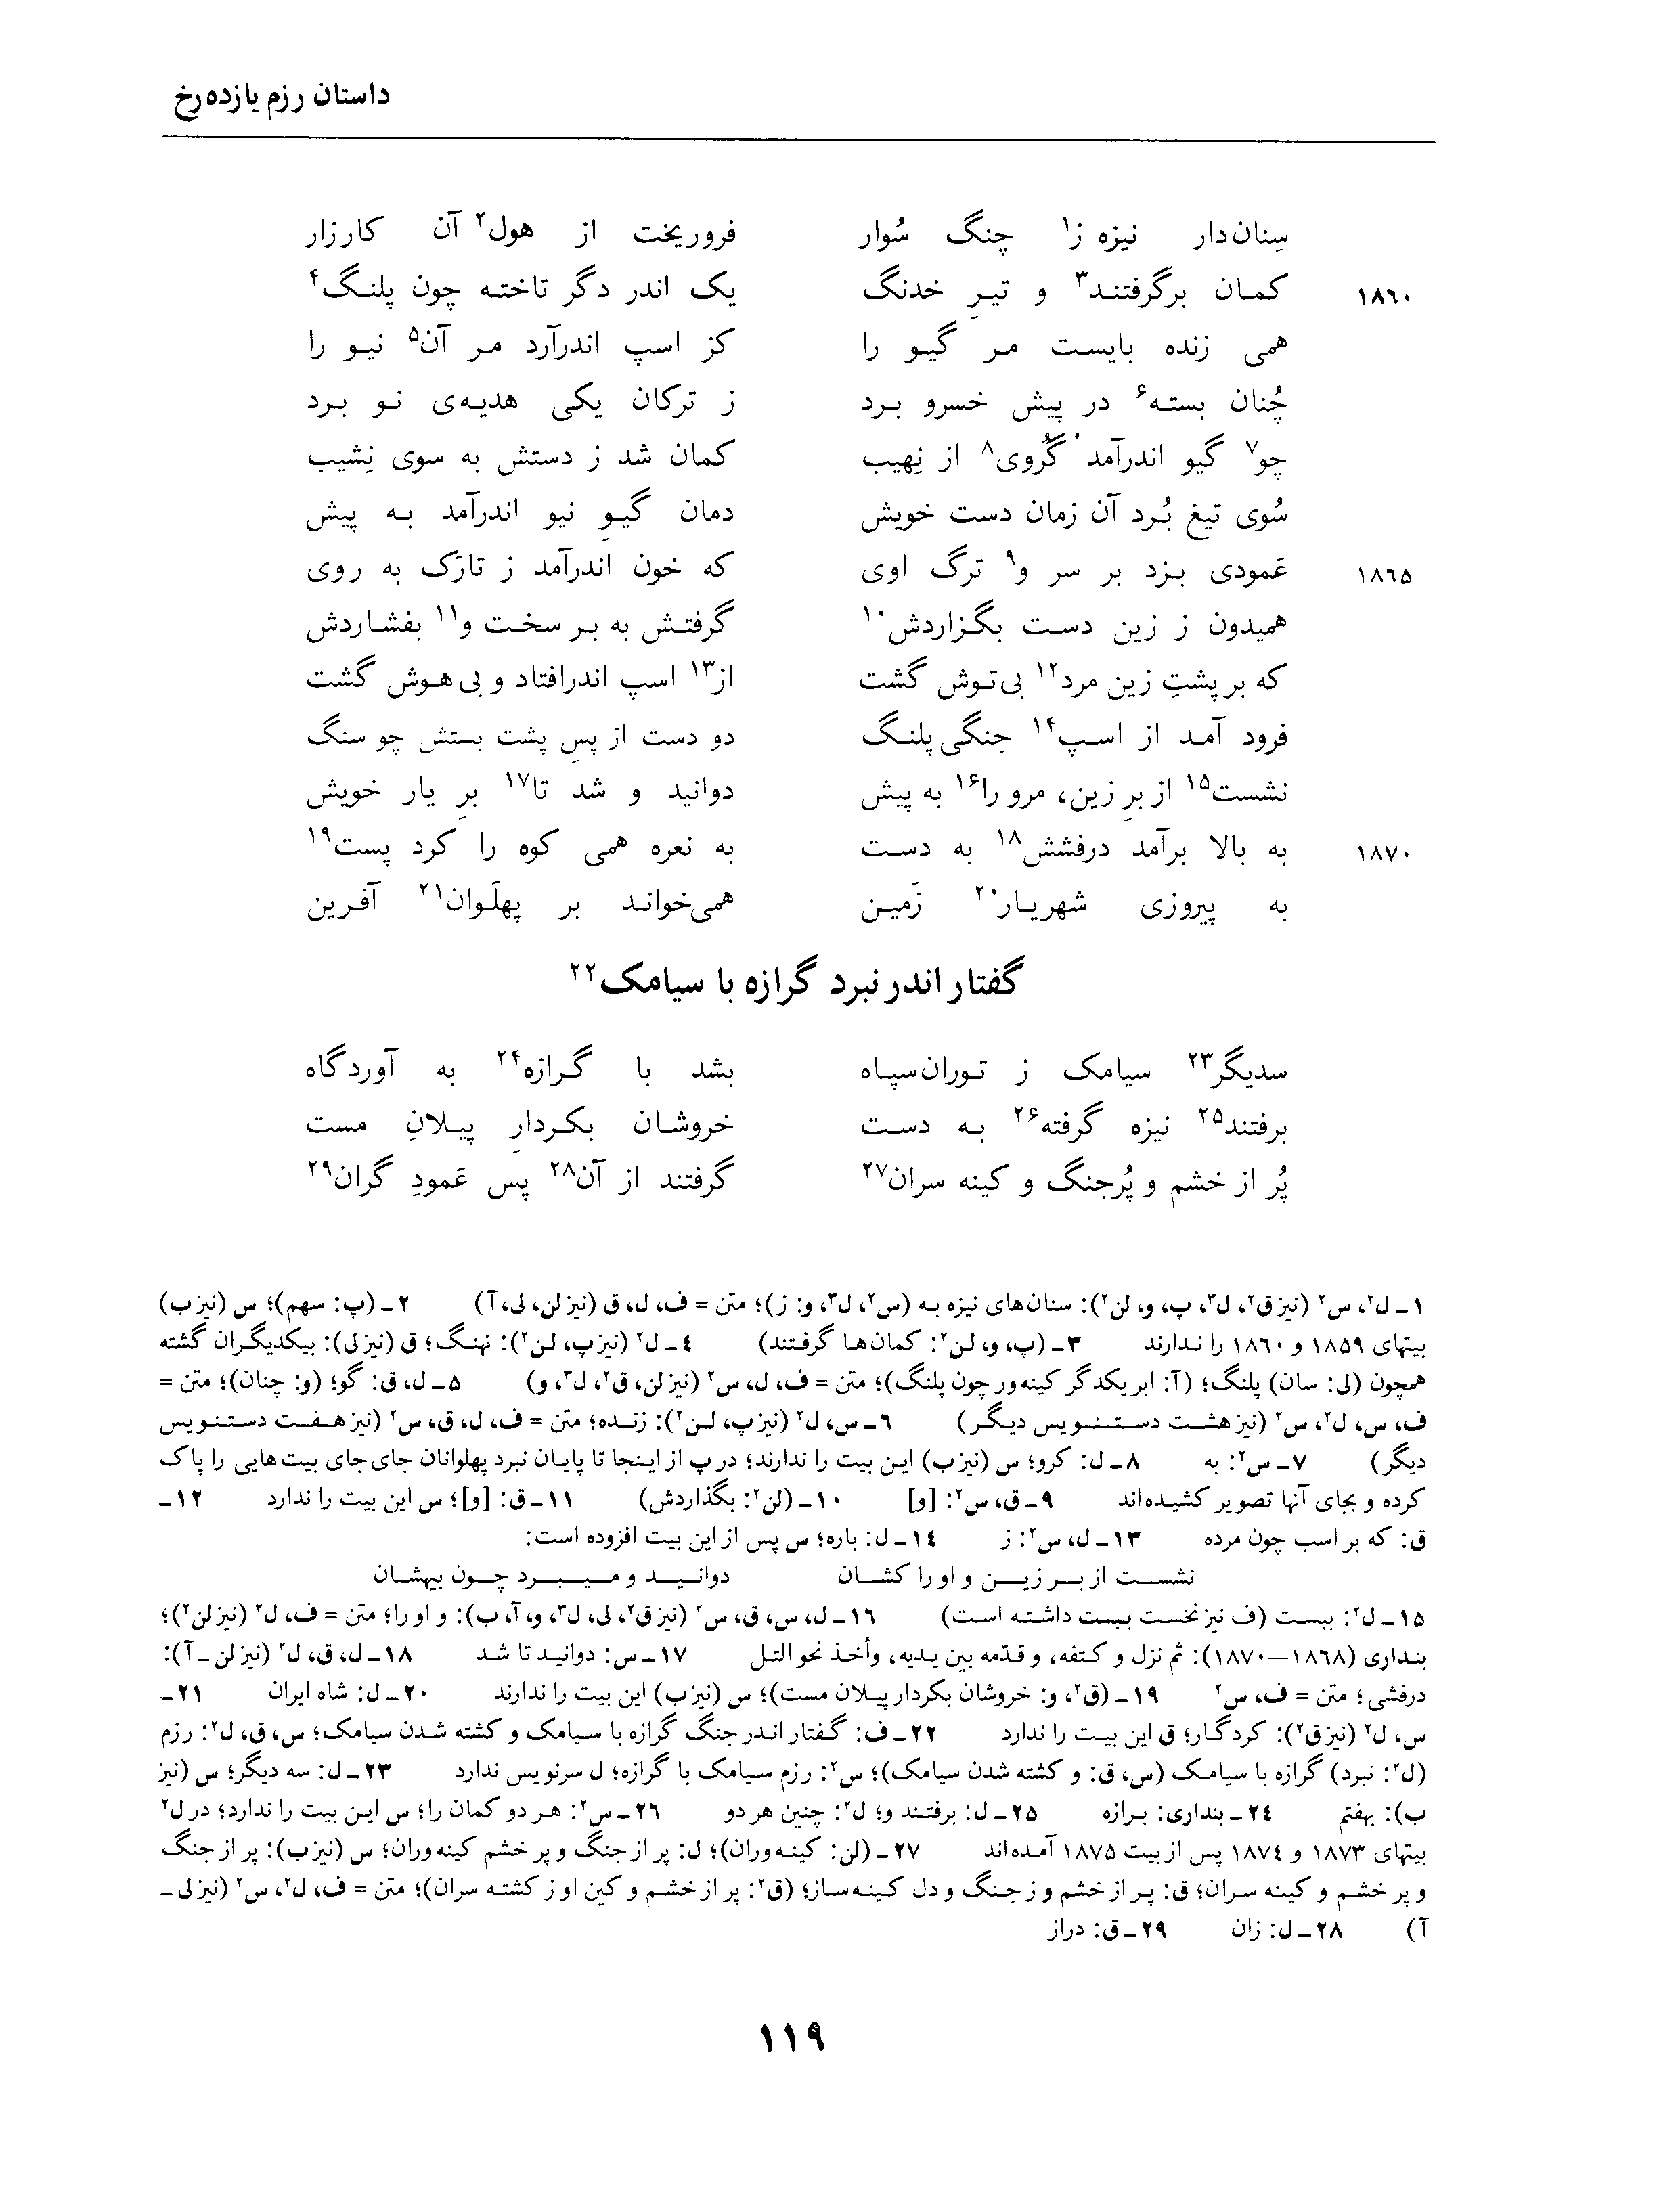 داستان رزم یازده‌رخ
سِنان‌دار نیزه ز۱ چنگ سُوار فروریخت از هول۲ آن کارزار
۱۸۶۰ کمان برگرفتند۳ و تیرِ خدنگ یک اندر دگر تاخته چون پلنگ۴
همی زنده بایست مر گیو را کز اسپ اندرآرد مر آن۵ نیو را
چُنان بسته۶ در پیش خسرو برد ز ترکان یکی هدیه‌ی نو برد
چو۷ گیو اندرآمد گُروی۸ از نِهیب کمان شد ز دستش به سوی نِشیب
سُوی تیغ بُرد آن زمان دست خویش دمان گیوِ نیو اندرآمد به پیش
۱۸۶۵ عَمودی بزد بر سر و۹ ترگ اوی که خون اندرآمد ز تارَک به روی
همیدون ز زین دست بگزاردش۱۰ گرفتش به بر سخت و۱۱ بفشاردش
که بر پشتِ زین مرد۱۲ بی‌توش گشت از۱۳ اسپ اندرافتاد و بی‌هوش گشت
فرود آمد از اسپ۱۴ جنگی پلنگ دو دست از پسِ پشت بستش چو سنگ
نشست۱۵ از برِ زین، مرو را۱۶ به پیش دوانید و شد تا۱۷ برِ یار خویش
۱۸۷۰ به بالا برآمد درفشش۱۸ به دست به نعره همی کوه را کرد پست۱۹
به پیروزی شهریار۲۰ زَمین همی‌خواند بر پهلَوان۲۱ آفرین
گفتار اندر نبرد گرازه با سیامک۲۲
سدیگر۲۳ سیامک ز توران‌سپاه بشد با گرازه۲۴ به آوردگاه
برفتند۲۵ نیزه گرفته۲۶ به دست خروشان بکردارِ پیلانِ مست
پُر از خشم و پُرجنگ و کینه سران۲۷ گرفتند از آن۲۸ پس عَمودِ گران۲۹
۱ـ ل۲، س۲ (نیز ق۲، ل۳، پ، و، لن۲): سنان‌های نیزه به (س۲، ل۳، و: ز)؛ متن = ف، ل، ق (نیز لن، لی، آ) ۲ـ (پ: سهم)؛ س (نیز ب)
بیتهای ۱۸۵۹ و ۱۸۶۰ را ندارند ۳ـ (پ، و، لن۲: کمان‌ها گرفتند) ۴ـ ل۲ (نیز پ، لن۲): نهنگ؛ ق (نیز لی): بیکدیگران گشته
همچون (لی: سان) پلنگ؛ (آ: ابر یکدگر کینه‌ور چون پلنگ)؛ متن = ف، ل، س۲ (نیز لن، ق۲، ل۳، و) ۵ـ ل، ق: گو؛ (و: چنان)؛ متن =
ف، س، ل۲، س۲ (نیز هشت دستنویس دیگر) ۶ـ س، ل۲ (نیز پ، لن۲): زنده؛ متن = ف، ل، ق، س۲ (نیز هفت دستنویس
دیگر) ۷ـ س۲: به ۸ـ ل: کرو؛ س (نیز ب) این بیت را ندارند؛ در پ از اینجا تا پایان نبرد پهلوانان جای جای بیت‌هایی را پاک
کرده و بجای آنها تصویر کشیده‌اند ۹ـ ق، س۲: [و] ۱۰ـ (لن۲: بگذاردش) ۱۱ـ ق: [و]؛ س این بیت را ندارد ۱۲ـ
ق: که بر اسب چون مرده ۱۳ـ ل، س۲: ز ۱۴ـ ل: باره؛ س پس از این بیت افزوده است:
نشست از بر زین و او را کشان دوانید و میبرد چون بیهشان
۱۵ـ ل۲: ببست (ف نیز نخست ببست داشته است) ۱۶ـ ل، س، ق، س۲ (نیز ق۲، لی، ل۳، و، آ، ب): و او را؛ متن = ف، ل۲ (نیز لن۲)؛
بنداری (۱۸۶۸—۱۸۷۰): ثم نزل و کتفه، و قدّمه بین یدیه، وأخذ نحو التل ۱۷ـ س: دوانید تا شد ۱۸ـ ل، ق، ل۲ (نیز لن ـ آ):
درفشی؛ متن = ف، س۲ ۱۹ـ (ق۲، و: خروشان بکردار پیلان مست)؛ س (نیز ب) این بیت را ندارند ۲۰ـ ل: شاه ایران ۲۱ـ
س، ل۲ (نیز ق۲): کردگار؛ ق این بیت را ندارد ۲۲ـ ف: گفتار اندر جنگ گرازه با سیامک و کشته شدن سیامک؛ س، ق، ل۲: رزم
(ل۲: نبرد) گرازه با سیامک (س، ق: و کشته شدن سیامک)؛ س۲: رزم سیامک با گرازه؛ ل سرنویس ندارد ۲۳ـ ل: سه دیگر؛ س (نیز
ب): بهفتم ۲۴ـ بنداری: برازه ۲۵ـ ل: برفتند و؛ ل۲: چنین هر دو ۲۶ـ س۲: هر دو کمان را؛ س این بیت را ندارد؛ در ل۲
بیتهای ۱۸۷۳ و ۱۸۷۴ پس از بیت ۱۸۷۵ آمده‌اند ۲۷ـ (لن: کینه‌وران)؛ ل: پر از جنگ و پر خشم کینه‌وران؛ س (نیز ب): پر از جنگ
و پر خشم و کینه سران؛ ق: پر از خشم و ز جنگ و دل کینه‌ساز؛ (ق۲: پر از خشم و کین او ز کشته سران)؛ متن = ف، ل۲، س۲ (نیز لی ـ
آ) ۲۸ـ ل: زان ۲۹ـ ق: دراز
۱۱۹